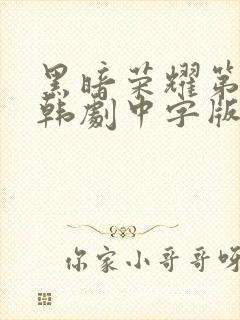 黑暗荣耀第
韩劇中字版
你家小哥哥呀